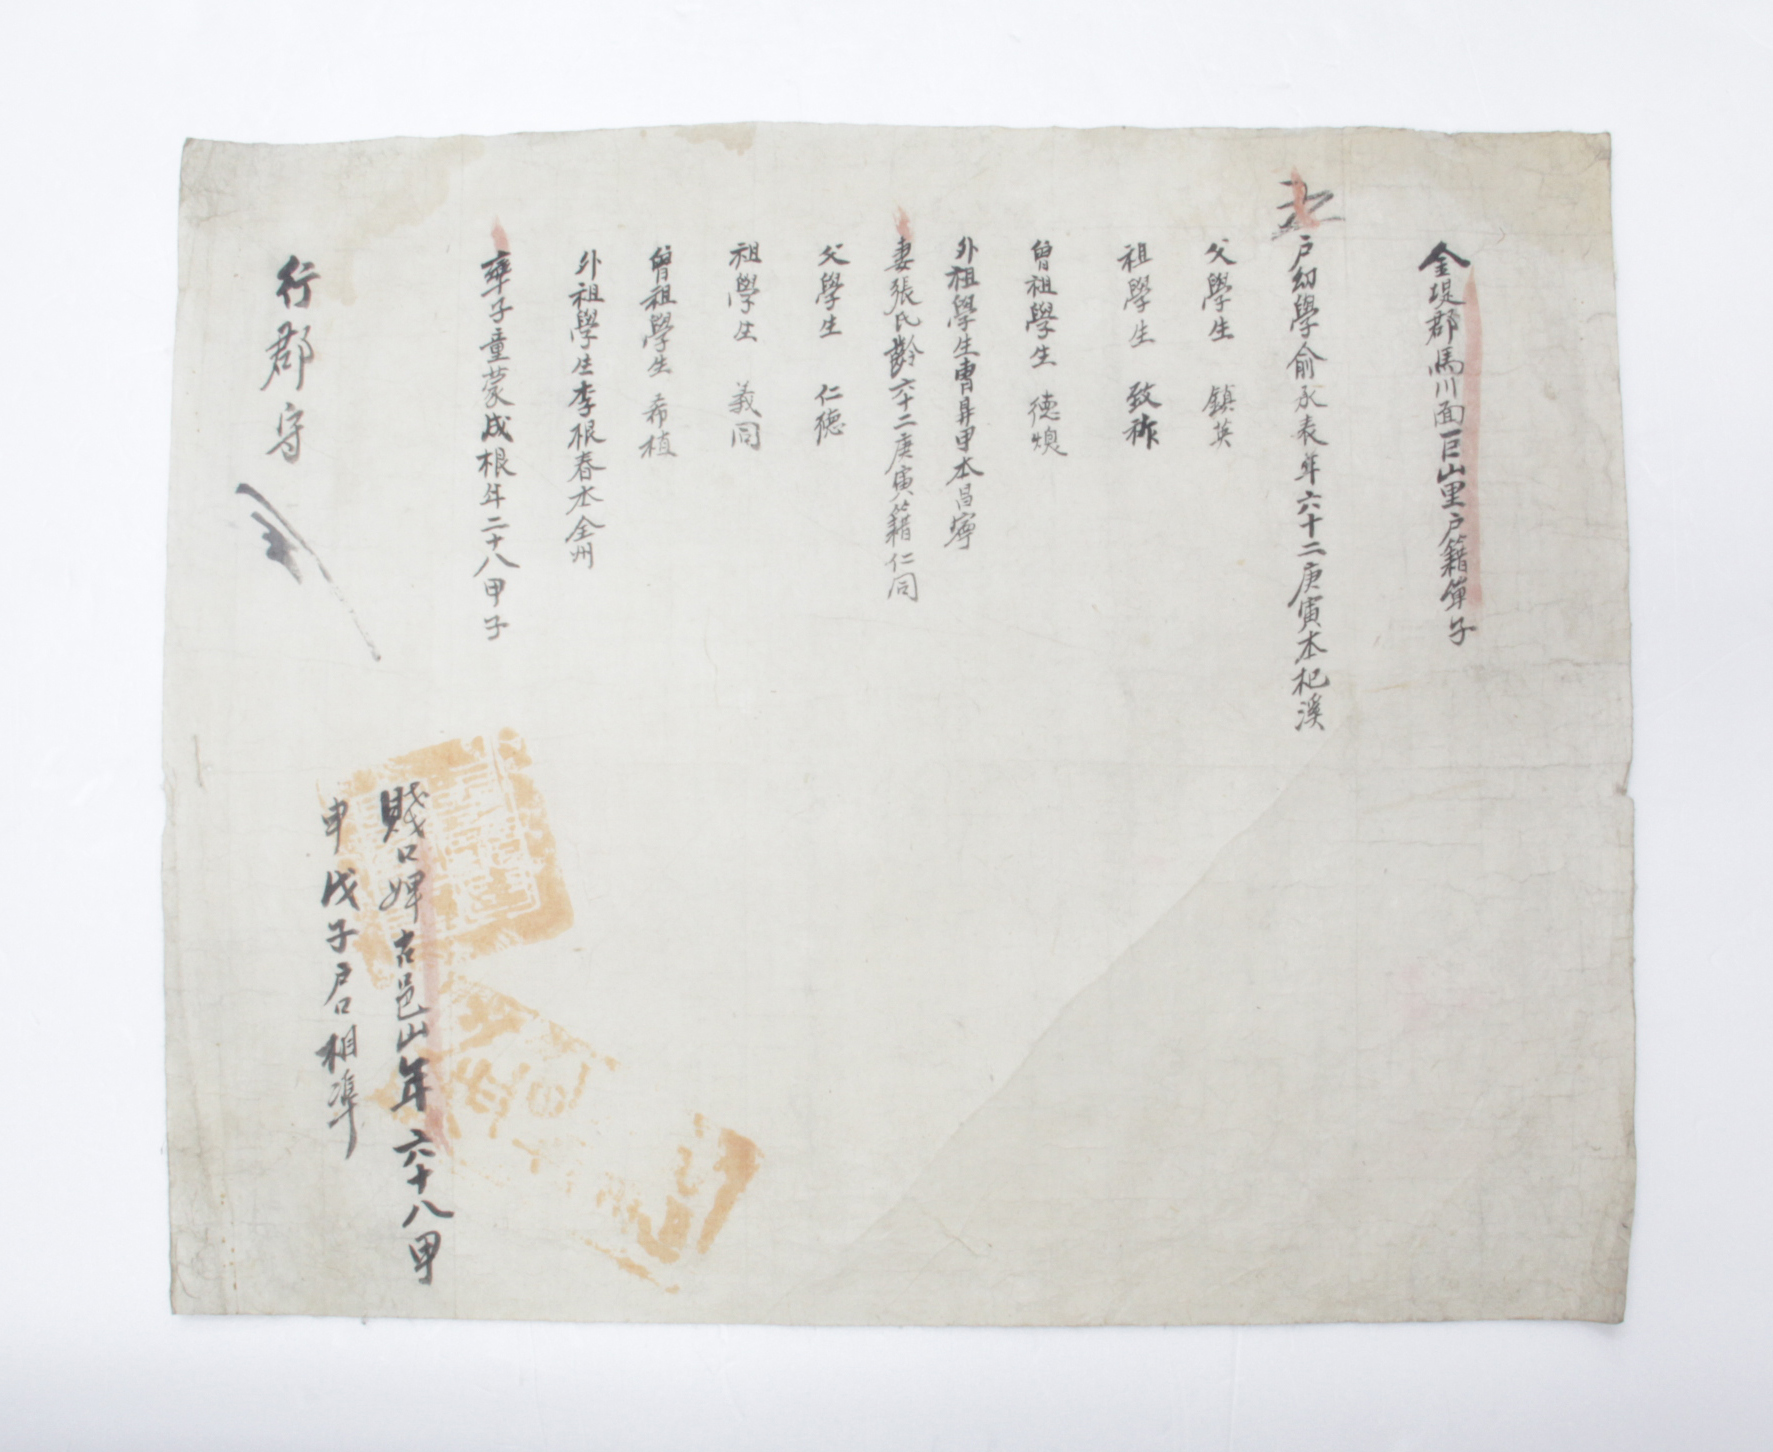 金堤郡馬川面巨山里戶籍單子
戶幼學俞承表年六十二庚寅本杞溪
父學生 鎮英
祖學生 致祚
曾祖學生 德煥
外祖學生曺昇甲本昌寧
妻張氏齡六十二庚寅籍仁同
父學生 仁德
祖學生 義同
曾祖學生 希植
外祖學生李根春本全州
率子童蒙成根年二十八甲子
賤口婢古邑山年六十八甲
申戊子戶口相準
行郡守